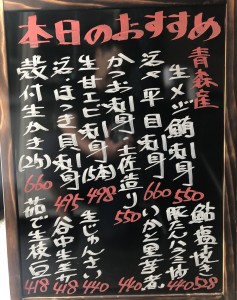 本日のおすすめ
青森産
生メジ鮪刺身 550
活〆平目刺身 660
かつお刺身・土佐造り 550
生甘エビ刺身(5本) 498
活・ほっき貝刺身 495
殻付生かき(2ケ) 660
鮎塩焼き 528
豚たんハラミ 440
いか 440
生じゅんさい 440
谷中生姜 418
茹で生枝豆 418